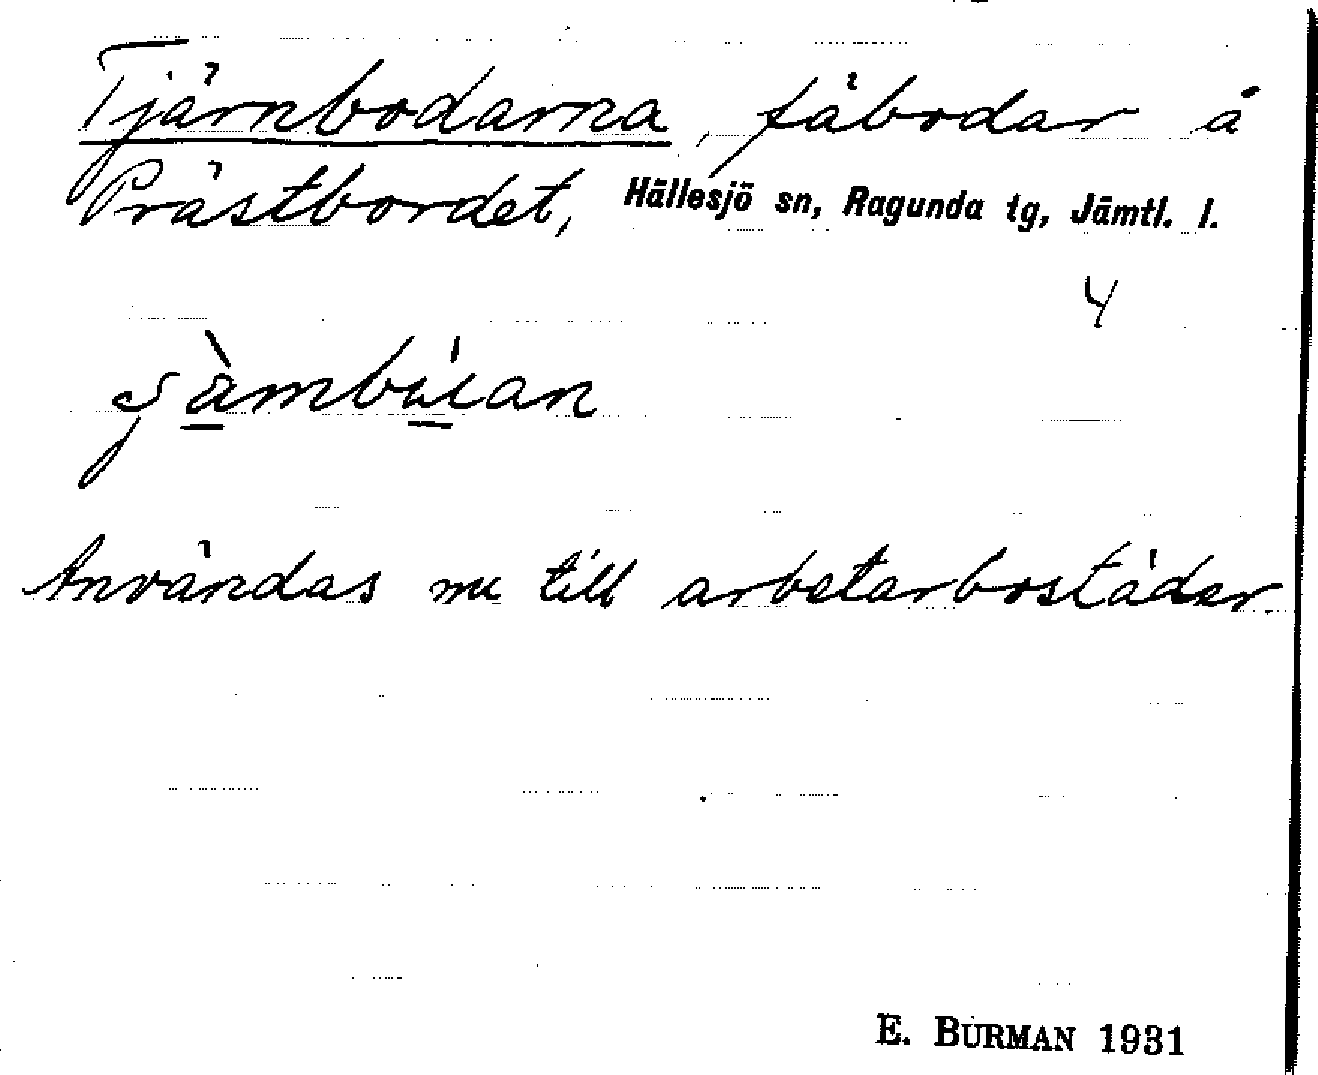 Tjärnbodarna, fäbodar å
Prästbordet, Hällesjö sn, Ragunda tg, Jämtl. l.
4
Användas nu till arbetarbostäder
E. BURMAN 1931